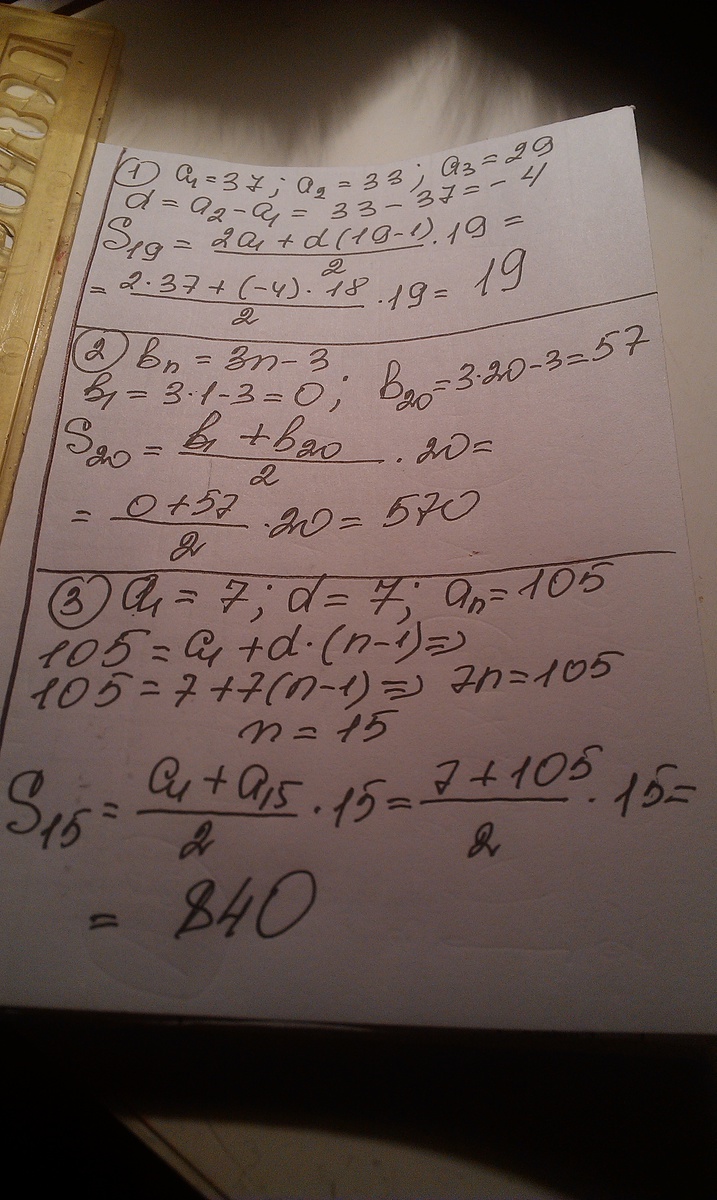 ① a₁ = 37; a₂ = 33; a₃ = 29
d = a₂ - a₁ = 33 - 37 = -4
S₁₉ = (2a₁ + d(19-1))/2 · 19 =
= (2·37 + (-4)·18)/2 · 19 = 19
② bₙ = 3n - 3
b₁ = 3·1 - 3 = 0; b₂₀ = 3·20 - 3 = 57
S₂₀ = (b₁ + b₂₀)/2 · 20 =
= (0 + 57)/2 · 20 = 570
③ a₁ = 7; d = 7; aₙ = 105
105 = a₁ + d·(n-1) ⇒
105 = 7 + 7(n-1) ⇒ 7n = 105
n = 15
S₁₅ = (a₁ + a₁₅)/2 · 15 = (7 + 105)/2 · 15 =
= 840